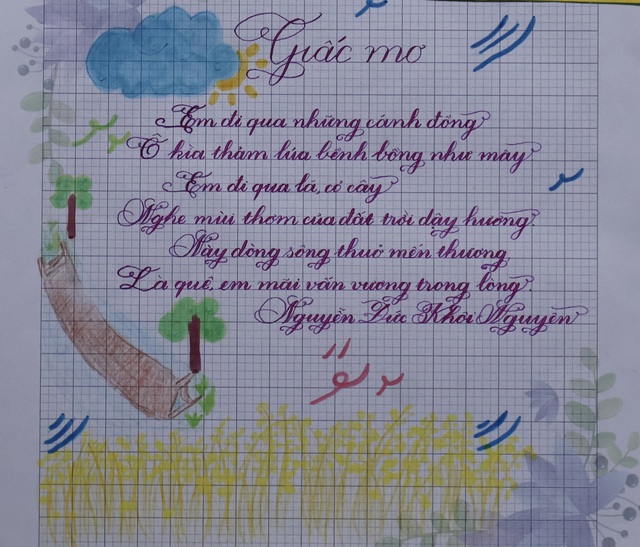 Giấc mơ
Em đi qua những cánh đồng
Ồ kìa thảm lúa bềnh bồng như mây
Em đi qua lá, cỏ cây
Nghe mùi thơm của đất trời dậy hương.
Này dòng sông thuở mến thương
Là quê, em mãi vấn vương trong lòng.
Nguyễn Đức Khôi Nguyên